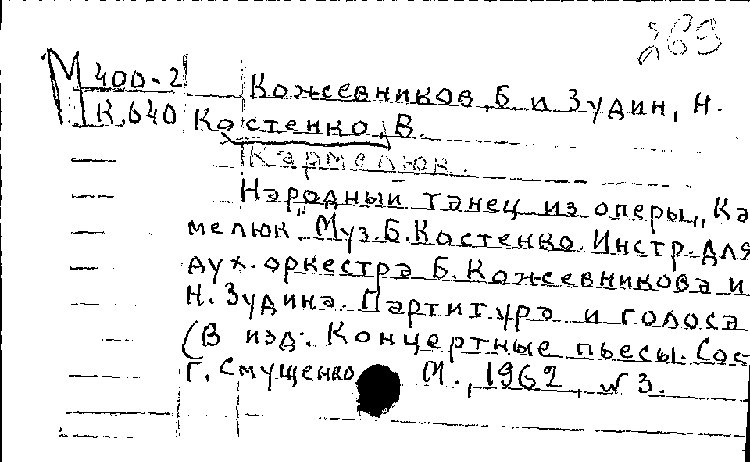 269
М 400-2 Кожевников, Б и Зудин, Н.
К 640 Костенко, В.
Кармелюк.
Народный танец из оперы „Ка
мелюк" Муз. Б. Костенко. Инстр. для
дух. оркестра Б. Кожевникова и
Н. Зудина. Партитура и голоса
(В изд: Концертные пьесы. Сос
Г. Смущенко М., 1962, № 3.